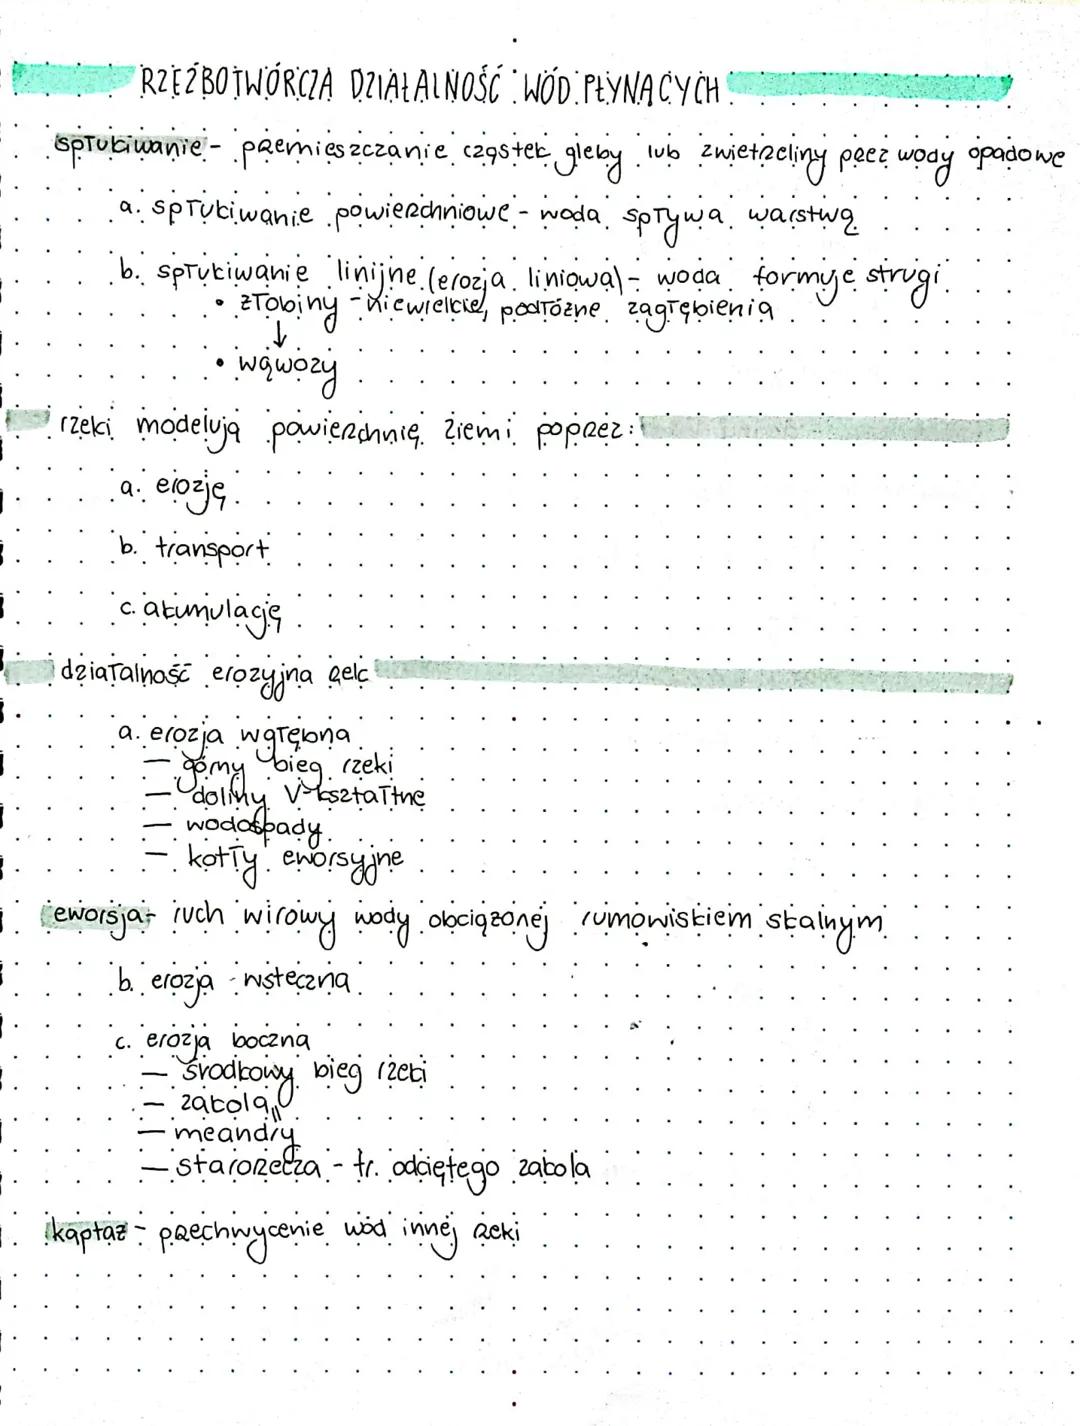 RZEŹBOTWÓRCZA DZIAŁALNOŚĆ WÓD PŁYNĄCYCH
spłukiwanie - przemieszczanie cząstek gleby lub zwietrzeliny przez wody opadowe
a. spłukiwanie powierzchniowe - woda spływa warstwą
b. spłukiwanie linijne (erozja liniowa) - woda formuje strugi
• żłobiny - niewielkie, podłóżne zagłębienia
↓
• wąwozy
rzeki modelują powierzchnię ziemi poprzez:
a. erozję
b. transport
c. akumulację
działalność erozyjna rzek
a. erozja wgłębna
— górny bieg rzeki
— doliny V-kształtne
— wodospady
— kotły eworsyjne
eworsja - ruch wirowy wody obciążonej rumowiskiem skalnym
b. erozja wsteczna
c. erozja boczna
— środkowy bieg rzeki
— zakola
— meandry
— starorzecza - fr. odciętego zakola
kaptaż - przechwycenie wód innej rzeki